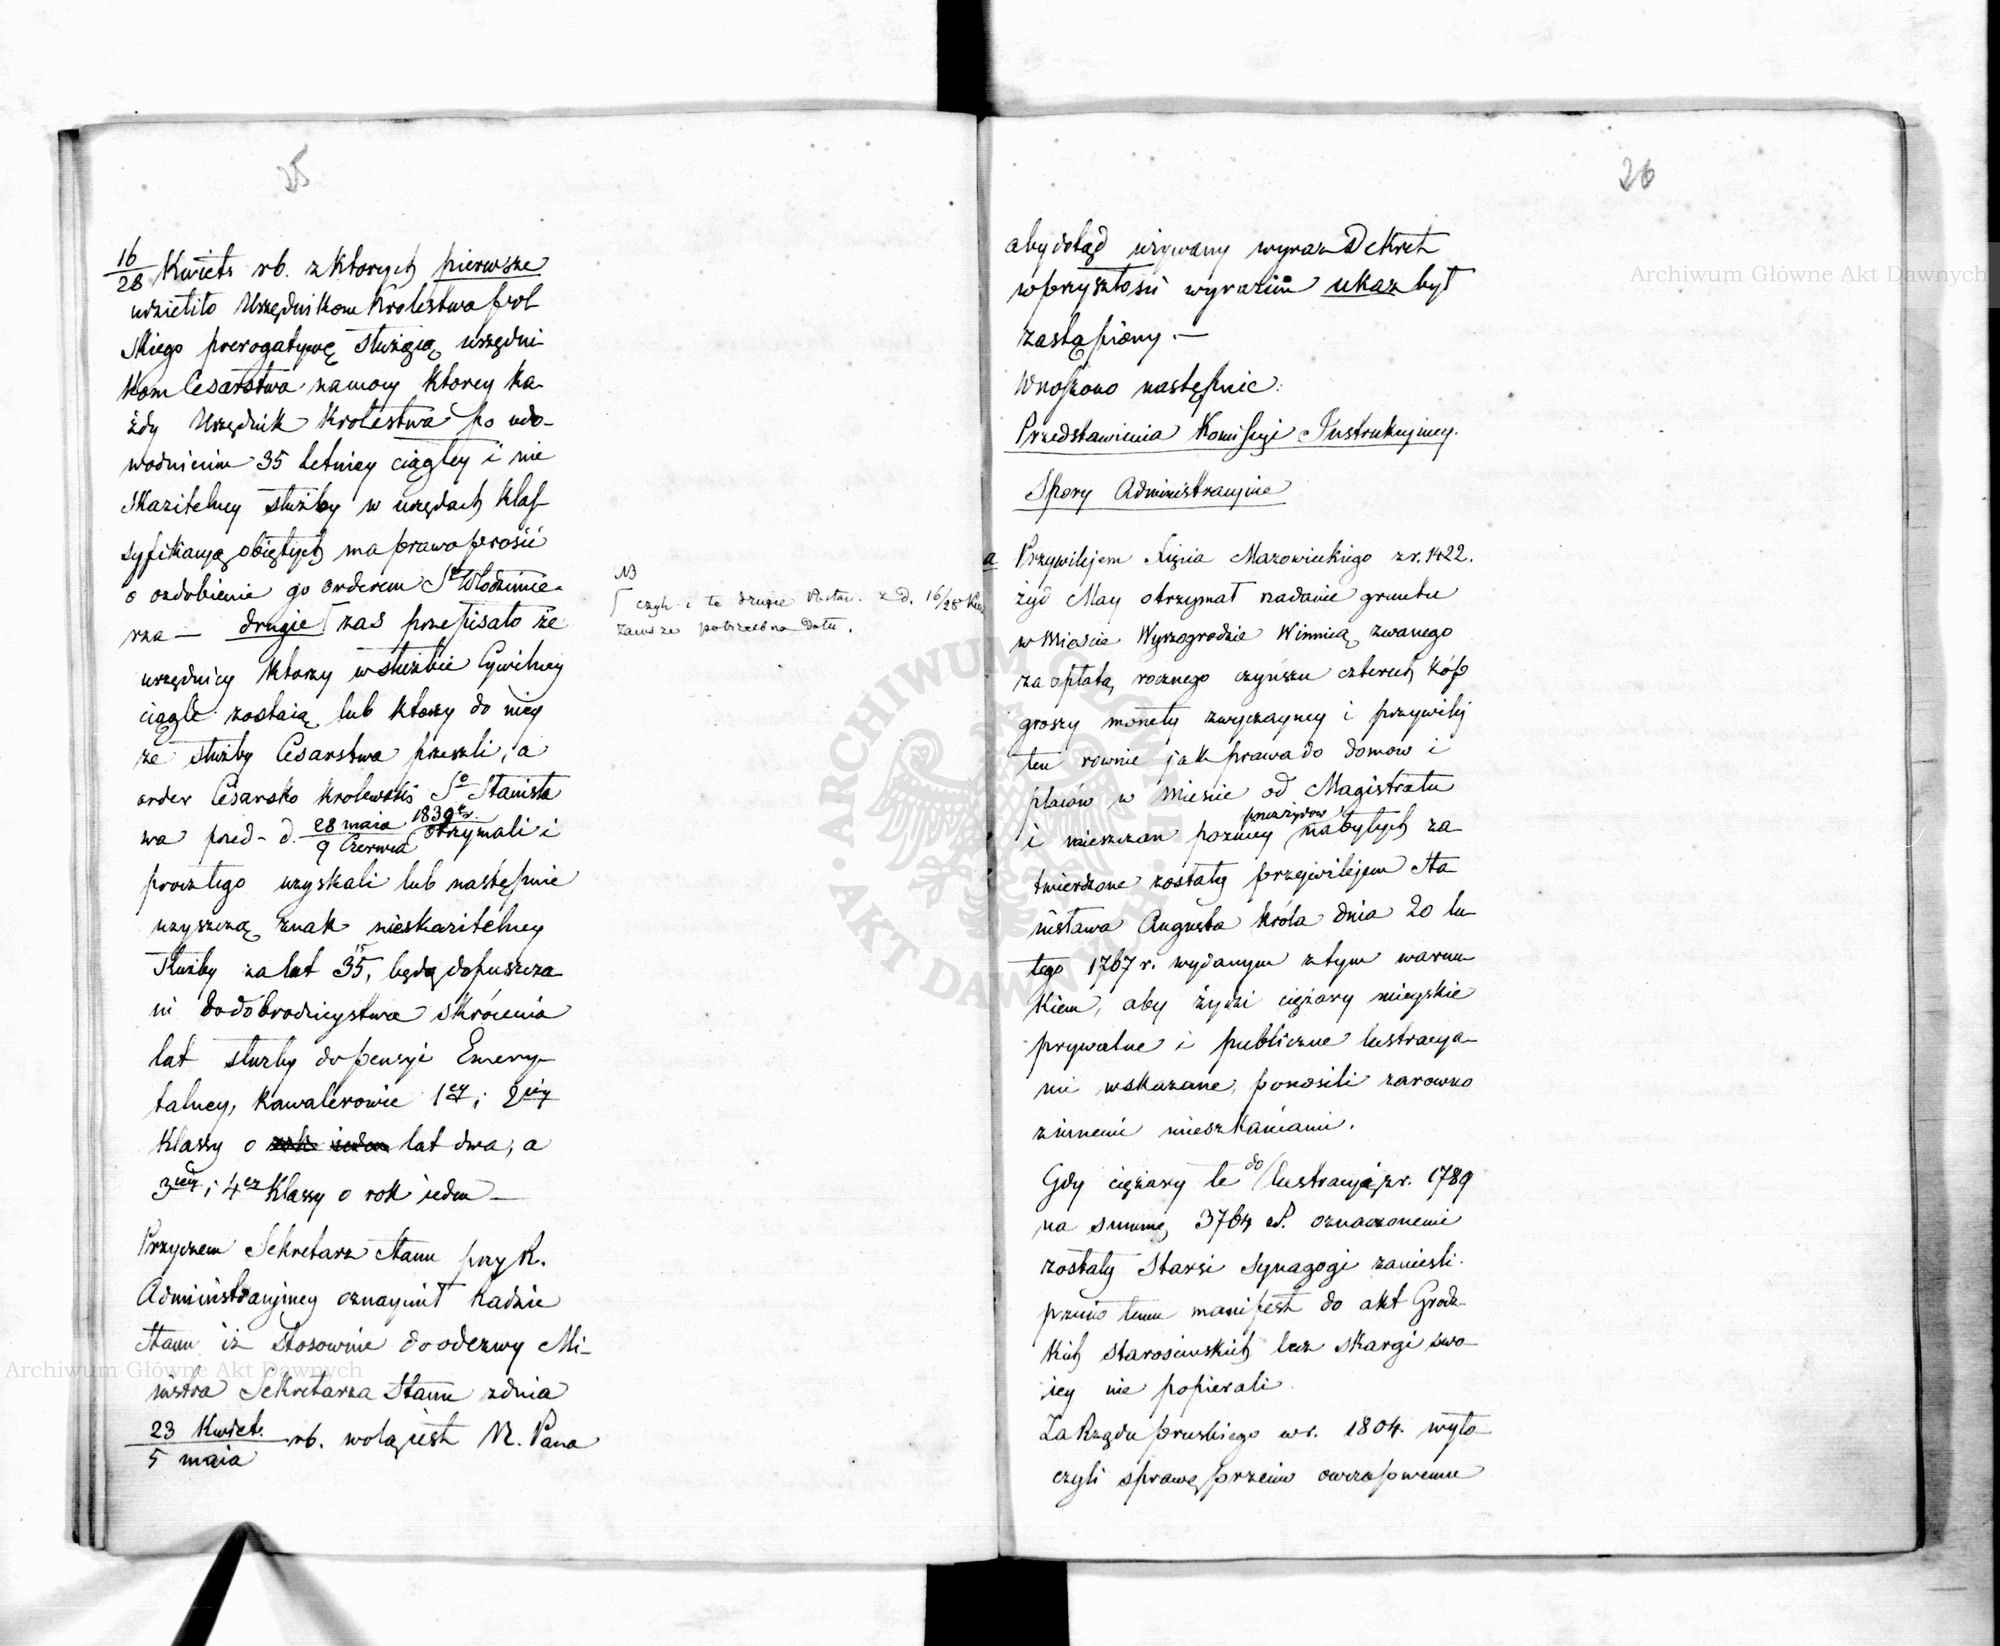 25
16/28 Kwietn rb. z ktorych pierwsze
udzieliło Urzędnikom Krolestwa Pol
skiego prerogatywę służącą urzędni-
kom Cesarstwa na mocy ktorey ka-
żdy Urzędnik Krolestwa po udo-
wodnieniu 35 letniey ciągłey i nie
skazitelney służby w urzędach klas-
syfikacyą obiętych ma prawo prosić
o ozdobienie go orderem Sgo Włodzimie-
rza — drugie zaś przepisało że
urzędnicy ktorzy w służbie Cywilney
ciągle zostaią lub ktorzy do niey
ze służby Cesarstwa przeszli, a
order Cesarsko Krolewski Sgo Stanisła
wa przed d. 28 maia / 9 Czerwca 1839 r. otrzymali i
procz tego uzyskali lub następnie
uzyszczą znak nieskazitelney
służby za lat 35, będą dopuszcza
ni do dobrodzieystwa skrócenia
lat służby do pensyi Emery-
talney, Kawalerowie 1ey i 2iey
Klassy o rok ieden lat dwa, a
3ciey i 4ey Klassy o rok ieden —
Przyczem Sekretarz Stanu przy R.
Administracyiney oznaymił Radzie
Stanu iż stosownie do odezwy Mi-
nistra Sekretarza Stanu z dnia
23 Kwiet. / 5 maia rb. wolą iest N. Pana
NB
czyli te drugie Postan. z d. 16/28 Kwie
zawsze potrzebna data.
26
aby dotąd używany wyraz Dekret
w przyszłości wyrazem ukaz był
zastąpiony. —
Wnoszono następnie:
Przedstawienia Komissyi Instrukcyiney.
Spory Administracyine
a Przywilejem Xięcia Mazowieckiego z r. 1422.
żyd May otrzymał nadanie gruntu
w Mieście Wyszogrodzie Winnicą zwanego
za opłatą rocznego czynszu czterech kóp
groszy monety zwyczayney i przywiley
ten rownie jak prawa do domow i
placów w Mieście od Magistratu
i mieszczan pozniey przez żydow nabytych za-
twierdzone zostały przywilejem Sta
nisława Augusta Króla dnia 20 lu
tego 1767 r. wydanym z tym warun
kiem, aby żydzi ciężary mieyskie
prywatne i publiczne lustracya-
mi wskazane, ponosili zarowno
z innemi mieszkańcami.
Gdy ciężary te do lustracyi z r. 1789
na summę 3764 zł. oznaczonemi
zostały Starsi Synagogi zanieśli
przeciw temu manifest do akt Grodz-
kich starościnskich lecz skargi swo
iey nie popierali.
Za Rządu pruskiego w r. 1804. wyto
czyli sprawę przeciw owczasowemu
Archiwum Główne Akt Dawnych
Archiwum Główne Akt Dawnych
ARCHIWUM GŁÓWNE AKT DAWNYCH